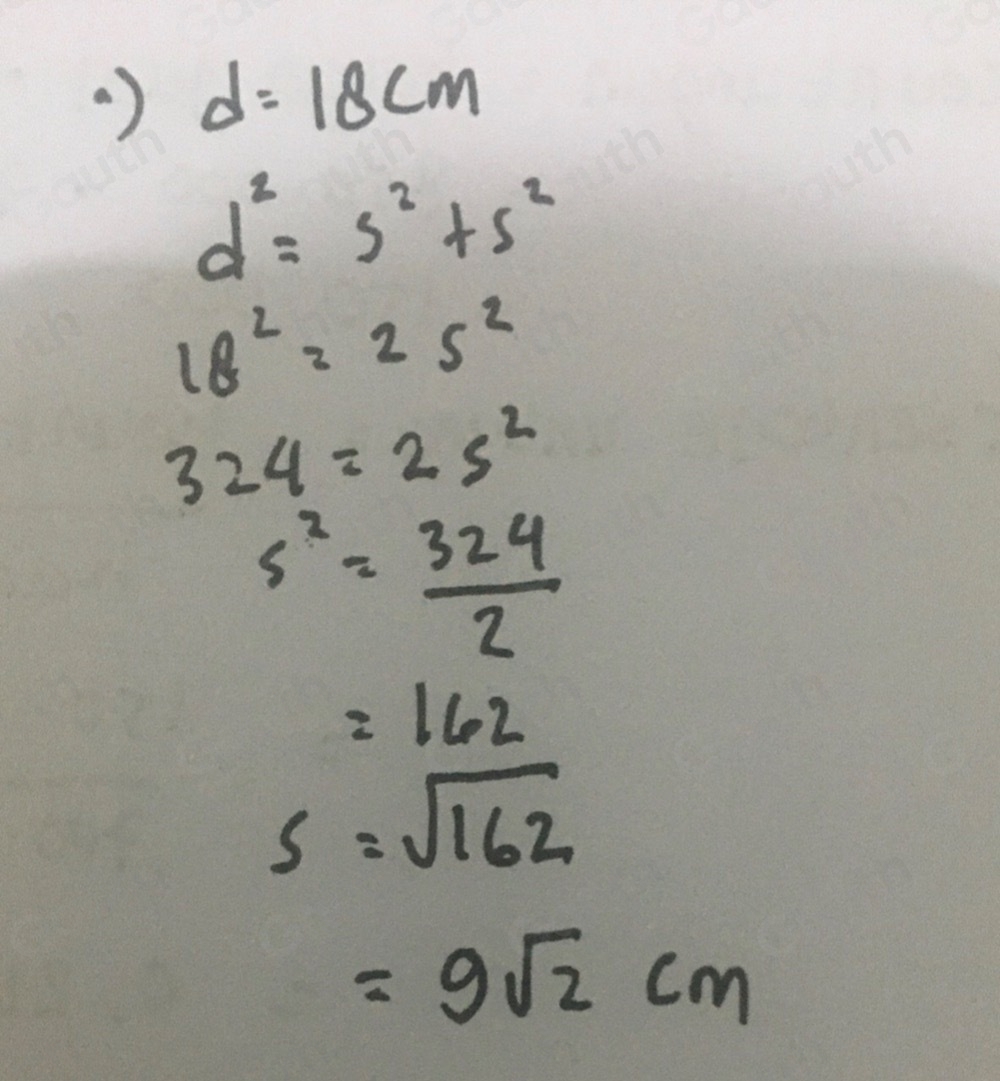 a) d = 18 cm
d² = s² + s²
18² = 2 s²
324 = 2 s²
s² = 324/2
= 162
s = √162
= 9√2 cm